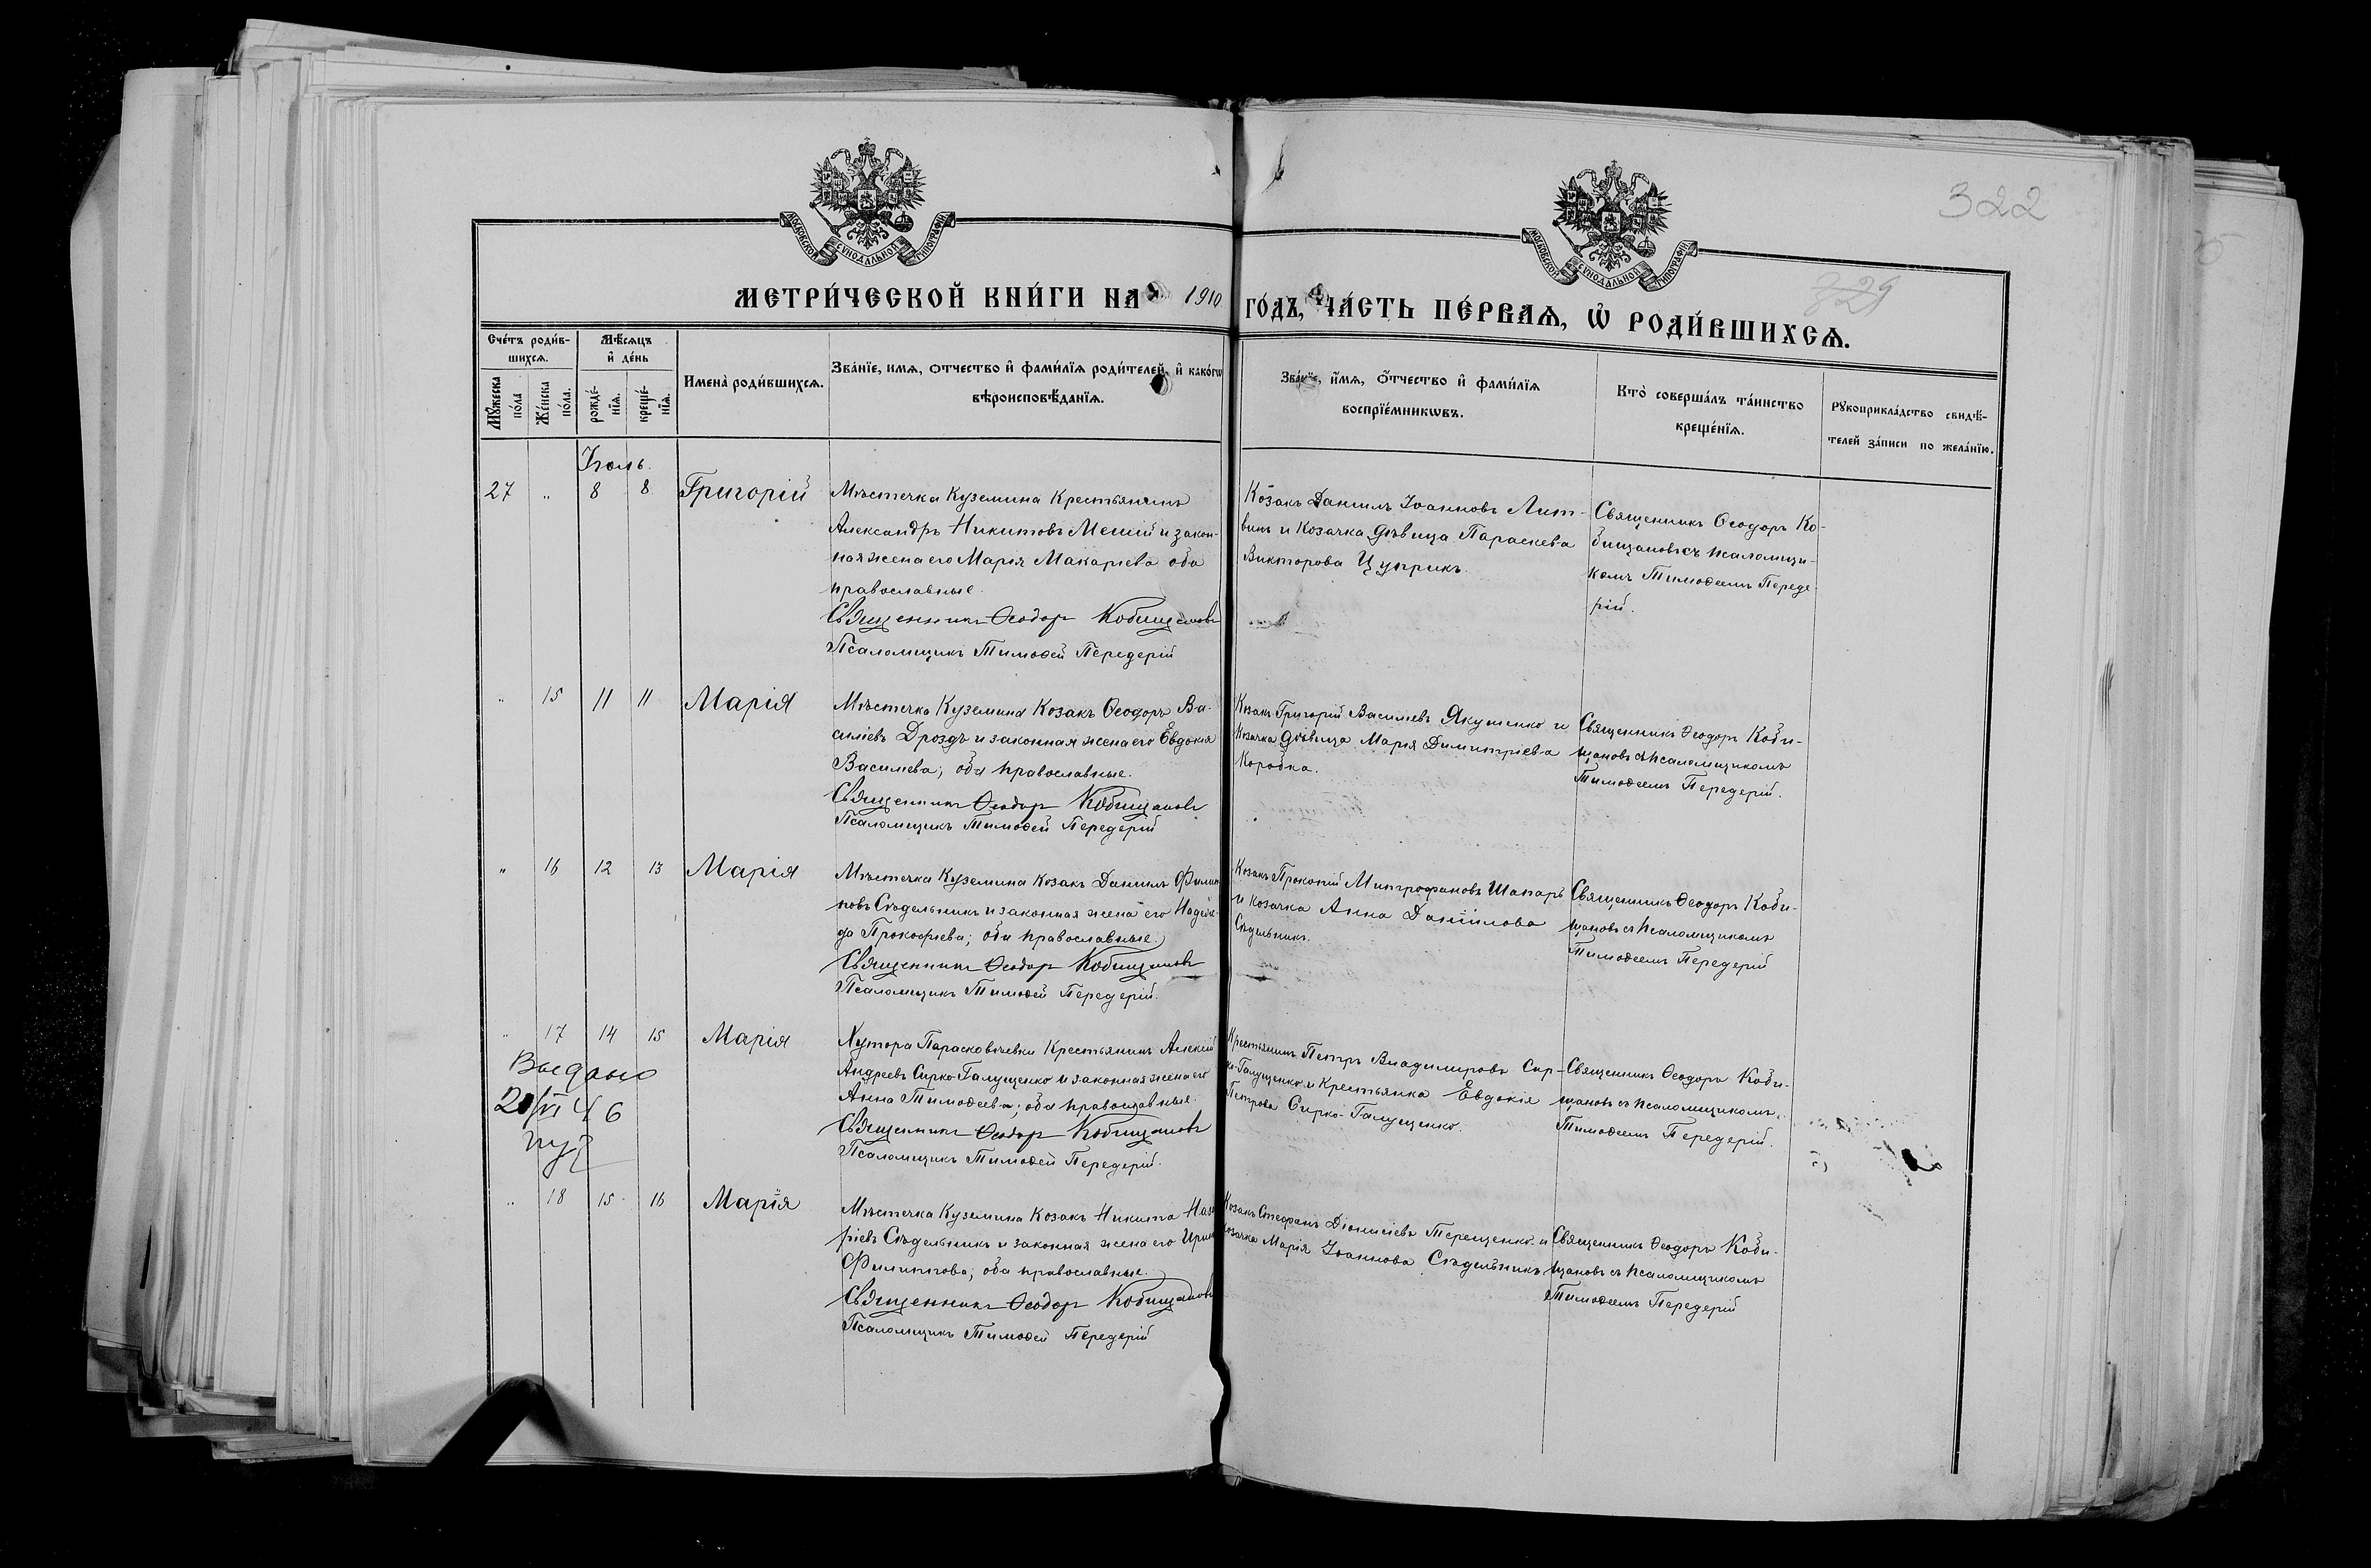 322
729
МОСКОВСКОЙ СѴНОДАЛЬНОЙ ТИПОГРАФІИ
МОСКОВСКОЙ СѴНОДАЛЬНОЙ ТИПОГРАФІИ
МЕТРИ́ЧЕСКОЙ КНИ́ГИ НА 1910 ГО́ДЪ, ЧА́СТЬ ПЕ́РВАѦ, Ѡ҆ РОДИ́ВШИХСѦ.
Сче́тъ роди́в-
шихсѧ.
Мꙋ́жеска по́ла
Же́нска по́ла.
Мѣ́сѧцъ
и҆ де́нь
рожде́-
нїѧ.
креще́-
нїѧ.
Имена̀ роди́вшихсѧ.
Зва́нїе, имѧ, ѻтчество и҆ фами́лїѧ роди́телей, и҆ како́гѡ
вѣроисповѣ́данїѧ.
Зва́нїе, и҆́мѧ, ѻ҆́тчество и҆ фами́лїѧ
воспрїе́мникѡвъ.
Кто̀ соверша́лъ та́инство
креще́нїѧ.
Рꙋкоприкла́дство свидѣ́-
телей за́писи по жела́нїю.
Іюль.
27 " 8 8 Григорій
Мѣстечка Куземина Крестьянинъ
Александръ Никитовъ Меший и закон-
ная жена его Марія Макаріева оба
православные.
Священникъ Ѳеодоръ Кобищановъ
Псаломщикъ Тимоѳей Передерій
Козакъ Даніилъ Іоанновъ Лит-
винъ и Козачка дѣвица Параскева
Викторова Цуприкъ.
Священникъ Ѳеодоръ Ко-
бищановъ съ псаломщи-
комъ Тимоѳеемъ Переде-
рій.
" 15 11 11 Марія
Мѣстечка Куземина Козакъ Ѳеодоръ Ва-
силіевъ Дроздъ и законная жена его Евдокія
Василіева; оба православные.
Священникъ Ѳеодоръ Кобищановъ
Псаломщикъ Тимоѳей Передерій
Козакъ Григорій Василіевъ Якушенко и
Козачка дѣвица Марія Димитріева
Коробка.
Священникъ Ѳеодоръ Коби-
щановъ съ псаломщикомъ
Тимоѳеемъ Передерій.
" 16 12 13 Марія
Мѣстечка Куземина Козакъ Даніилъ Филип-
повъ Сѣдельникъ и законная жена его Надеж-
да Прокофіева; оба православные.
Священникъ Ѳеодоръ Кобищановъ
Псаломщикъ Тимоѳей Передерій.
Козакъ Прокопій Митрофановъ Шапаръ
и козачка Анна Даніилова
Сѣдельникъ.
Священникъ Ѳеодоръ Коби-
щановъ съ псаломщикомъ
Тимоѳеемъ Передерій
" 17 14 15 Марія
Выдано
20/VI 46
Хутора Парасковіевки Крестьянинъ Алексій
Андреевъ Сирко-Галущенко и законная жена его
Анна Тимоѳеева; оба православные.
Священникъ Ѳеодоръ Кобищановъ
Псаломщикъ Тимоѳей Передерій.
Крестьянинъ Петръ Владимировъ Сир-
ко-Галущенко и Крестьянка Евдокія
Петрова Сирко-Галущенко.
Священникъ Ѳеодоръ Коби-
щановъ съ псаломщикомъ
Тимоѳеемъ Передерій.
" 18 15 16 Марія
Мѣстечка Куземина Козакъ Никита Наза-
ріевъ Сѣдельникъ и законная жена его Ирина
Филиппова; оба православные.
Священникъ Ѳеодоръ Кобищановъ
Псаломщикъ Тимоѳей Передерій
Козакъ Стефанъ Діонисіевъ Терещенко и
козачка Марія Іоаннова Сѣдельникъ
Священникъ Ѳеодоръ Коби-
щановъ съ псаломщикомъ
Тимоѳеемъ Передерій